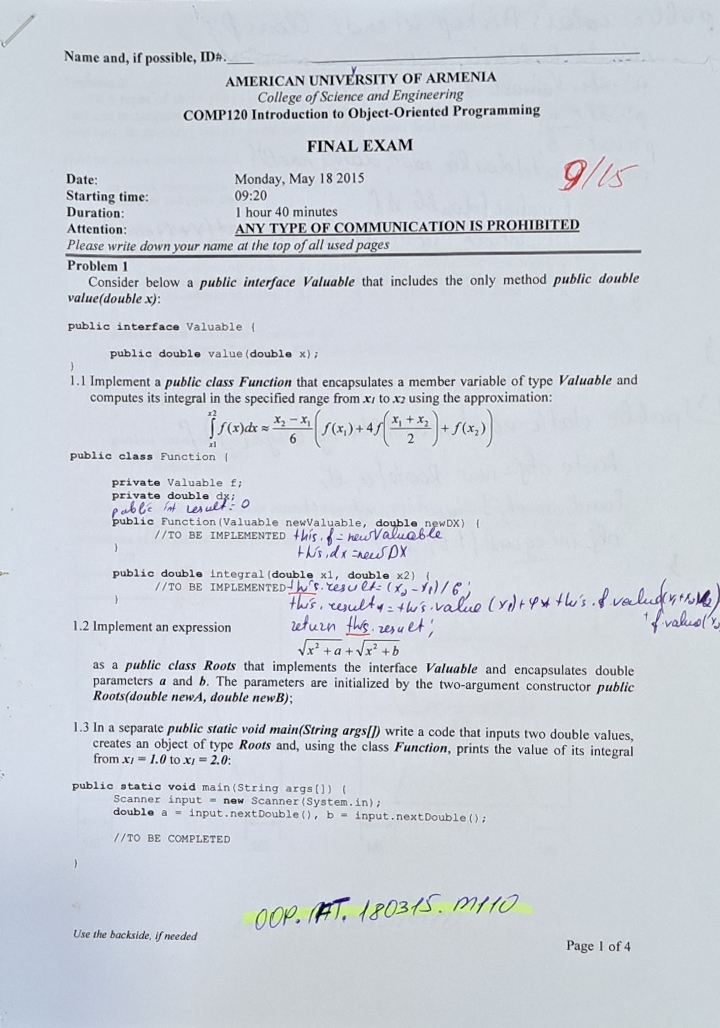 Name and, if possible, ID#.
AMERICAN UNIVERSITY OF ARMENIA
College of Science and Engineering
COMP120 Introduction to Object-Oriented Programming
FINAL EXAM
9/15
Date: Monday, May 18 2015
Starting time: 09:20
Duration: 1 hour 40 minutes
Attention: ANY TYPE OF COMMUNICATION IS PROHIBITED
Please write down your name at the top of all used pages
Problem 1
Consider below a public interface Valuable that includes the only method public double
value(double x):
public interface Valuable {
public double value(double x);
}
1.1 Implement a public class Function that encapsulates a member variable of type Valuable and
computes its integral in the specified range from x1 to x2 using the approximation:
∫x1x2 f(x)dx ≈ (x2 − x1)/6 (f(x1) + 4f((x1 + x2)/2) + f(x2))
public class Function {
private Valuable f;
private double dx;
public int result = 0
public Function(Valuable newValuable, double newDX) {
//TO BE IMPLEMENTED this.f = newValuable
} this.dx = newDX
public double integral(double x1, double x2) {
//TO BE IMPLEMENTED this.result = (x2 - x1)/6;
} this.result = this.value (x1) + 4 * this.f.value
f.value(
1.2 Implement an expression return this.result;
√x² + a + √x² + b
as a public class Roots that implements the interface Valuable and encapsulates double
parameters a and b. The parameters are initialized by the two-argument constructor public
Roots(double newA, double newB);
1.3 In a separate public static void main(String args[]) write a code that inputs two double values,
creates an object of type Roots and, using the class Function, prints the value of its integral
from x1 = 1.0 to x1 = 2.0:
public static void main(String args[]) {
Scanner input = new Scanner(System.in);
double a = input.nextDouble(), b = input.nextDouble();
//TO BE COMPLETED
}
180315. M110
Use the backside, if needed
Page 1 of 4